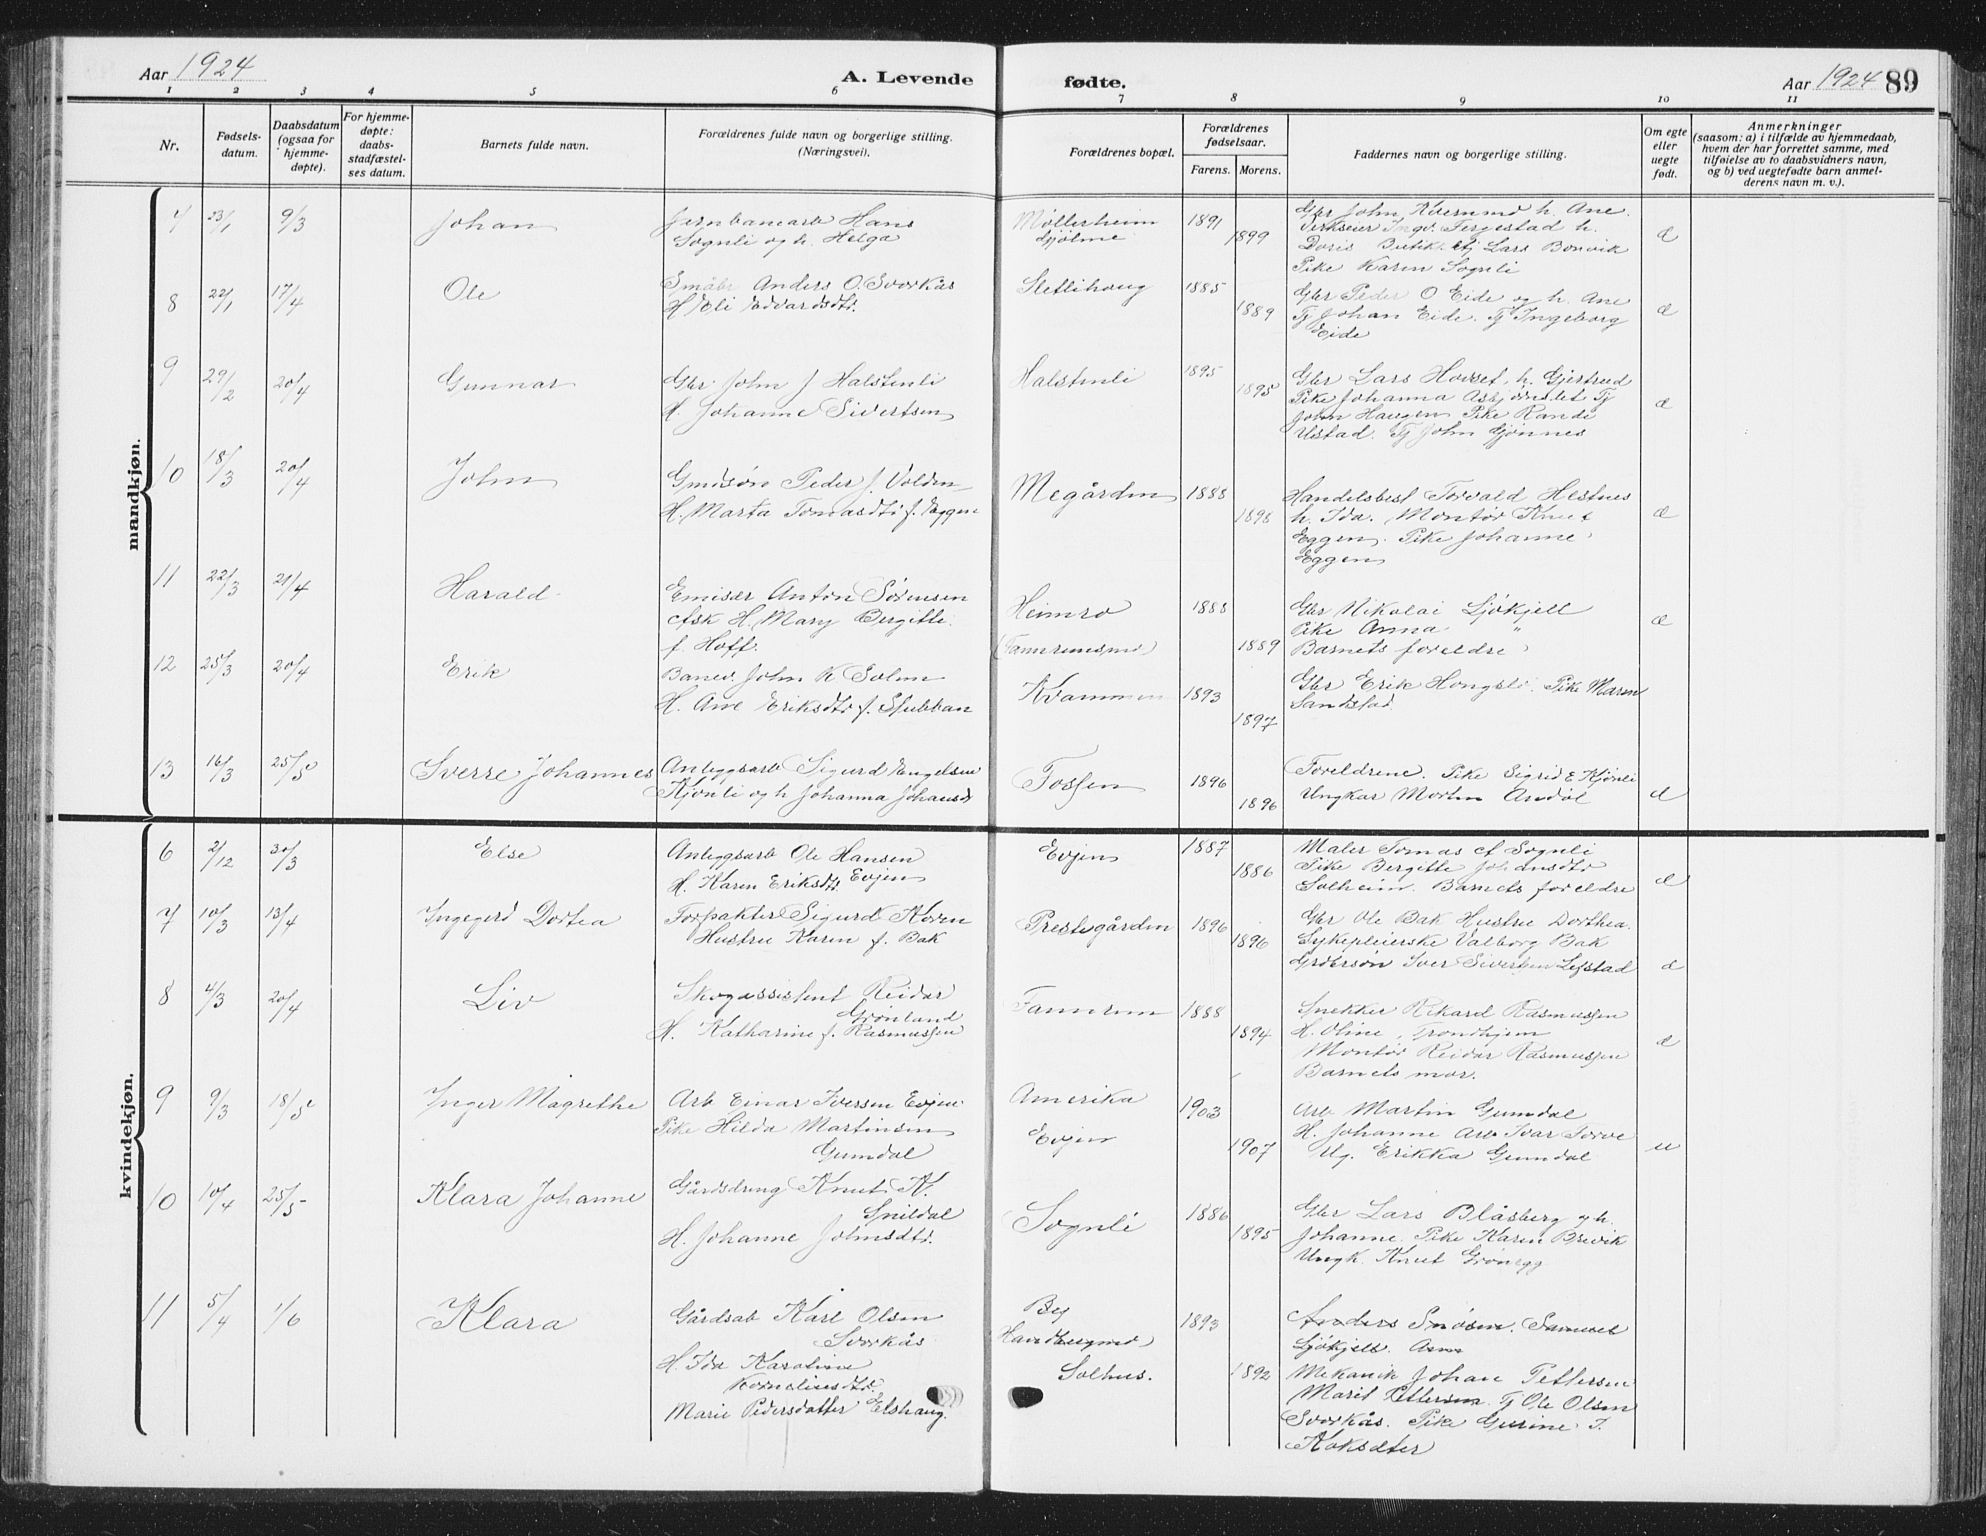 Aar 1924
A. Levende
fødte.
Aar 1924 89
1 2 3 4 5 6 7 8 9 10 11
Nr.
Fødsels-
datum.
Daabsdatum
(ogsaa for
hjemme-
døpte).
For hjemme-
døpte:
daabs-
stadfæstel-
ses datum.
Barnets fulde navn.
Forældrenes fulde navn og borgerlige stilling.
(Næringsvei).
Forældrenes bopæl.
Forældrenes
fødselsaar.
Farens. Morens.
Faddernes navn og borgerlige stilling.
Om egte
eller
uegte
født.
Anmerkninger
(saasom: a) i tilfælde av hjemmedaab,
hvem der har forrettet samme, med
tilføielse av to daabsvidners navn,
og b) ved uegtefødte barn anmel-
derens navn m. v.).
mandkjøn.
7 23/1 9/3 Johan
Jernbanearb Hans
Sognli og h. Helga
Møllerheim
Gjølme
1891 1899
Gbr John Kvernmo h. Ane.
Verkseier Ingv. Fergestad h.
Doris Butikk Lars Bonvik
Pike Karen Sognli
æ
8 22/1 17/4 Ole
Småbr Anders O. Svorkås
H. Eli Edvardsdtr.
Slettihaug
1885 1889
Gbr Peder O Eide og h. Ane
Tj Johan Eide. Tj Ingeborg
Eide
æ
9 29/2 20/4 Gunnar
Gbr John J Halstenli
H. Johanne Sivertsen
Halstenli
1895 1895
Gbr Lars Hovset, h. Gjertrud
Pike Johanna Tj
John Haugen Pike Randi
Ustad. Tj John Gjønnes
æ
10 18/3 20/4 John
Gmdsøn Peder J. Volden
H. Marta Tomasdtr f. Eggen
Megården
1888 1898
Handelsbest Torvald Hestnes
h. Ida. Montør Knut
Eggen. Pike Johanne
Eggen
æ
11 22/3 21/4 Harald
Emisær Anton Sørensen
H. Mary Bergitte
f. Hoff.
Heimro
(Fannremsmo)
1888 1889
Gbr Nikolai Ljøkjell
Pike Anna "
Barnets foreldre
æ
12 25/3 20/4 Erik
Banev. John K Solem
H. Ane Eriksdtr f. Stubban
Kvammen
1893 1897
Gbr Erik Hongsli. Pike Maren
Sandstad
13 16/3 25/5 Sverre Johannes
Anleggsarb Sigurd Engelsen
Kjønli og h Johanna Johansdt
Fossen
1896 1896
Foreldrene. Pike Sigrid E Kjønli
Ungkar Morten Asdøl
æ
kvindekjøn.
6 2/12 30/3 Else
Anleggsarb Ole Hansen
H. Karen Eriksdtr Evjen
Evjen
1887 1886
Maler Tomas Sognli
Pike Bergitte Johansdtr
Solheim. Barnets foreldre
æ
7 10/3 13/4 Ingegerd Dortea
Forpakter Sigurd Koren
Hustru Karen f. Bak
Prestegården
1896 1896
Gbr Ole Bak Hustru Dorthea.
Sykepleierske Valborg Bak
Grdbrsøn Iver Sivertsen Lefstad
æ
8 4/3 20/4 Liv
Skogassistent Reidar
Grønland
H. Katharine f. Rasmussen
Fannrem
1888 1894
Snekker Rikard Rasmussen
H. Oline, Trondhjem
Montør Reidar Rasmussen
Barnets mor.
æ
9 9/3 18/5 Inger Magrethe
Arb Einar Iversen Evjen
Pike Hilda Martinsen
Gumdal
Amerika
Evjen
1903 1907
Arb Martin Gumdal
H. Johanne Arb Ivar Torve
Ug. Erikka Gumdal
u
10 10/4 25/5 Klara Johanne
Gårdsdreng Knut K.
Snildal
H. Johanne Johnsdtr.
Sognli
1886 1895
Gbr Lars Blåsberg og h.
Johanne. Pike Karen Brevik
Ungk. Knut Grønegg
11 5/4 1/6 Klara
Gårdsab Karl Olsen
Svorkås
H. Ida Karoline
Kornelisdtr
Marie Pedersdatter Elshaug.
By
Solhus.
1893 1892
Anders Snøsen. Samuel
Ljøkjell.
Mekanik Johan Pettersen
Marit Pettersen. Tj Ole Olsen
Svorkås. Pike Gurine T.
Koksæter